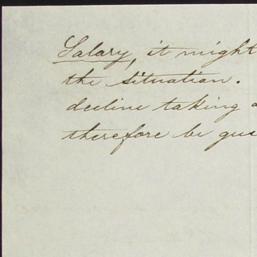 Salary, it might
the situation.
decline taking a
therefore be gue